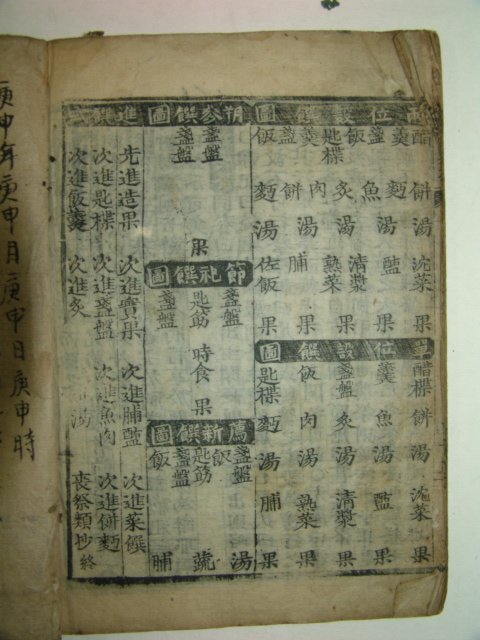 位設饌圖
醋 羹 盞 飯 匙楪 羹 盞 飯
餠 麪 魚 炙 肉 餠 麪
湯 湯 湯 湯 湯 湯
沈菜 醢 淸漿 熟菜 脯 佐飯
果 果 果 果 果 果
位設饌圖
醋楪 羹 盞盤 飯 匙楪
餠 魚 炙 肉 麪
湯 湯 湯 湯 湯
沈菜 醢 淸漿 熟菜 脯
果 果 果 果 果
朔參饌圖
盞盤 盞盤
果
節祀饌圖
盞盤 匙筯 盞盤
時食
果
薦新饌圖
盞盤 飯 匙筯 盞盤 飯
湯 蔬 脯
進饌
先進造果 次進實果 次進脯醢 次進菜饌
次進匙楪 次進盞盤 次進魚肉 次進餠麪
次進飯羹 次進炙 湯 喪祭類抄終
庚申年庚申月庚申日庚申時